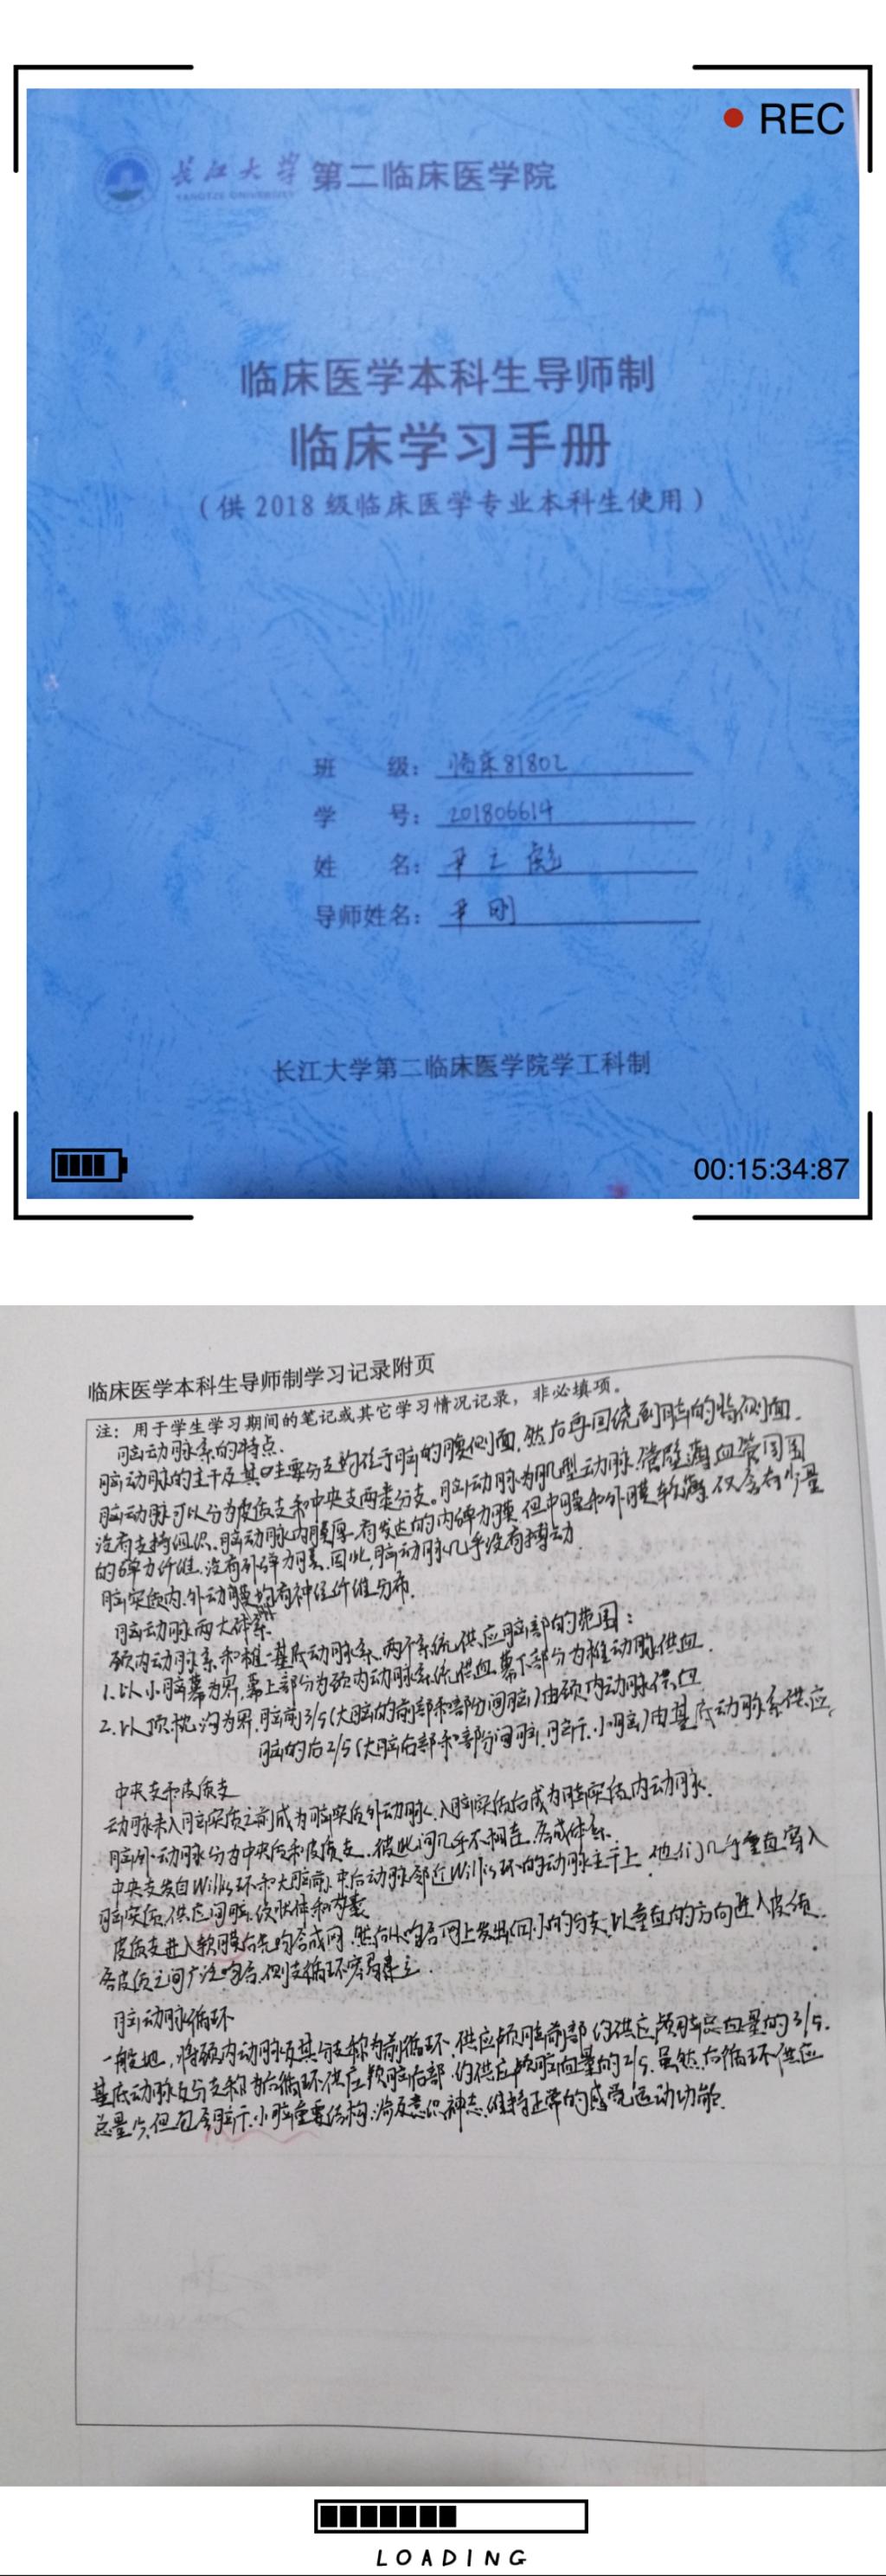 REC
长江大学 第二临床医学院
YANGTZE UNIVERSITY
临床医学本科生导师制
临床学习手册
(供2018级临床医学专业本科生使用)
班 级: 临床81802
学 号: 201806614
姓 名: 尹之彪
导师姓名: 尹刚
长江大学第二临床医学院学工科制
00:15:34:87
临床医学本科生导师制学习记录附页
注:用于学生学习期间的笔记或其它学习情况记录,非必填项。
脑动脉系的特点.
脑动脉的主干及其主要分支均位于脑的腹侧面,然后再回绕到脑的背侧面.
脑动脉可以分为皮质支和中央支两类分支。脑动脉为肌型动脉,管壁薄,血管周围
没有支持组织,脑动脉内膜厚,有发达的内弹力膜,但中膜和外膜较薄,仅含有少量
的弹力纤维,没有外弹力膜,因此,脑动脉几乎没有搏动.
脑实质内、外动脉均有神经纤维分布.
脑动脉两大体系
颈内动脉系和椎-基底动脉系,两个系统供应脑部的范围:
1.以小脑幕为界,幕上部分为颈内动脉系统供血,幕下部分为椎动脉供血.
2.以顶枕沟为界,脑前3/5(大脑的前部和部分间脑)由颈内动脉供血
脑的后2/5(大脑后部和部分间脑,脑干、小脑)由基底动脉系供应.
中央支和皮质支
动脉未入脑实质之前成为脑实质外动脉,入脑实质后成为脑实质内动脉.
脑外动脉分为中央支和皮质支,彼此间几乎不相连,各成体系.
中央支发自Willis环和大脑前、中、后动脉邻近Willis环的动脉主干上,他们几乎垂直穿入
脑实质,供应间脑、纹状体和内囊
皮质支进入软膜后先吻合成网,然后从吻合网上发出细小的分支,以垂直的方向进入皮质.
各皮质之间广泛吻合,侧支循环容易建立.
脑动脉循环
一般地,将颈内动脉及其分支称为前循环,供应颅脑前部,约供应颅脑总血量的3/5.
基底动脉及分支称为后循环,供应颅脑后部,约供应颅脑血量的2/5.虽然,后循环供应
总量少,但包含脑干、小脑重要结构,涉及意识神志,维持正常的感觉运动功能.
LOADING